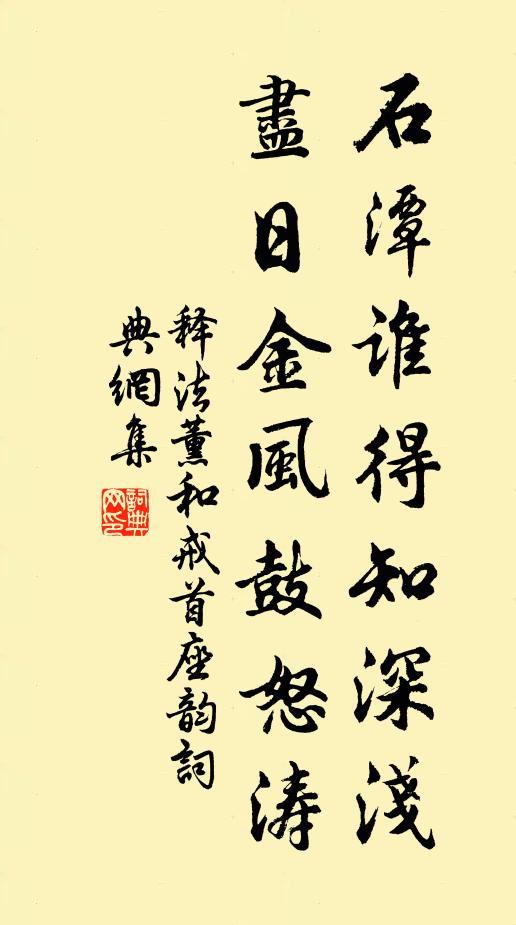 石潭誰得知深淺
盡日金風鼓怒涛
释法薰和戒首座韵詞
典網集
詞典网印